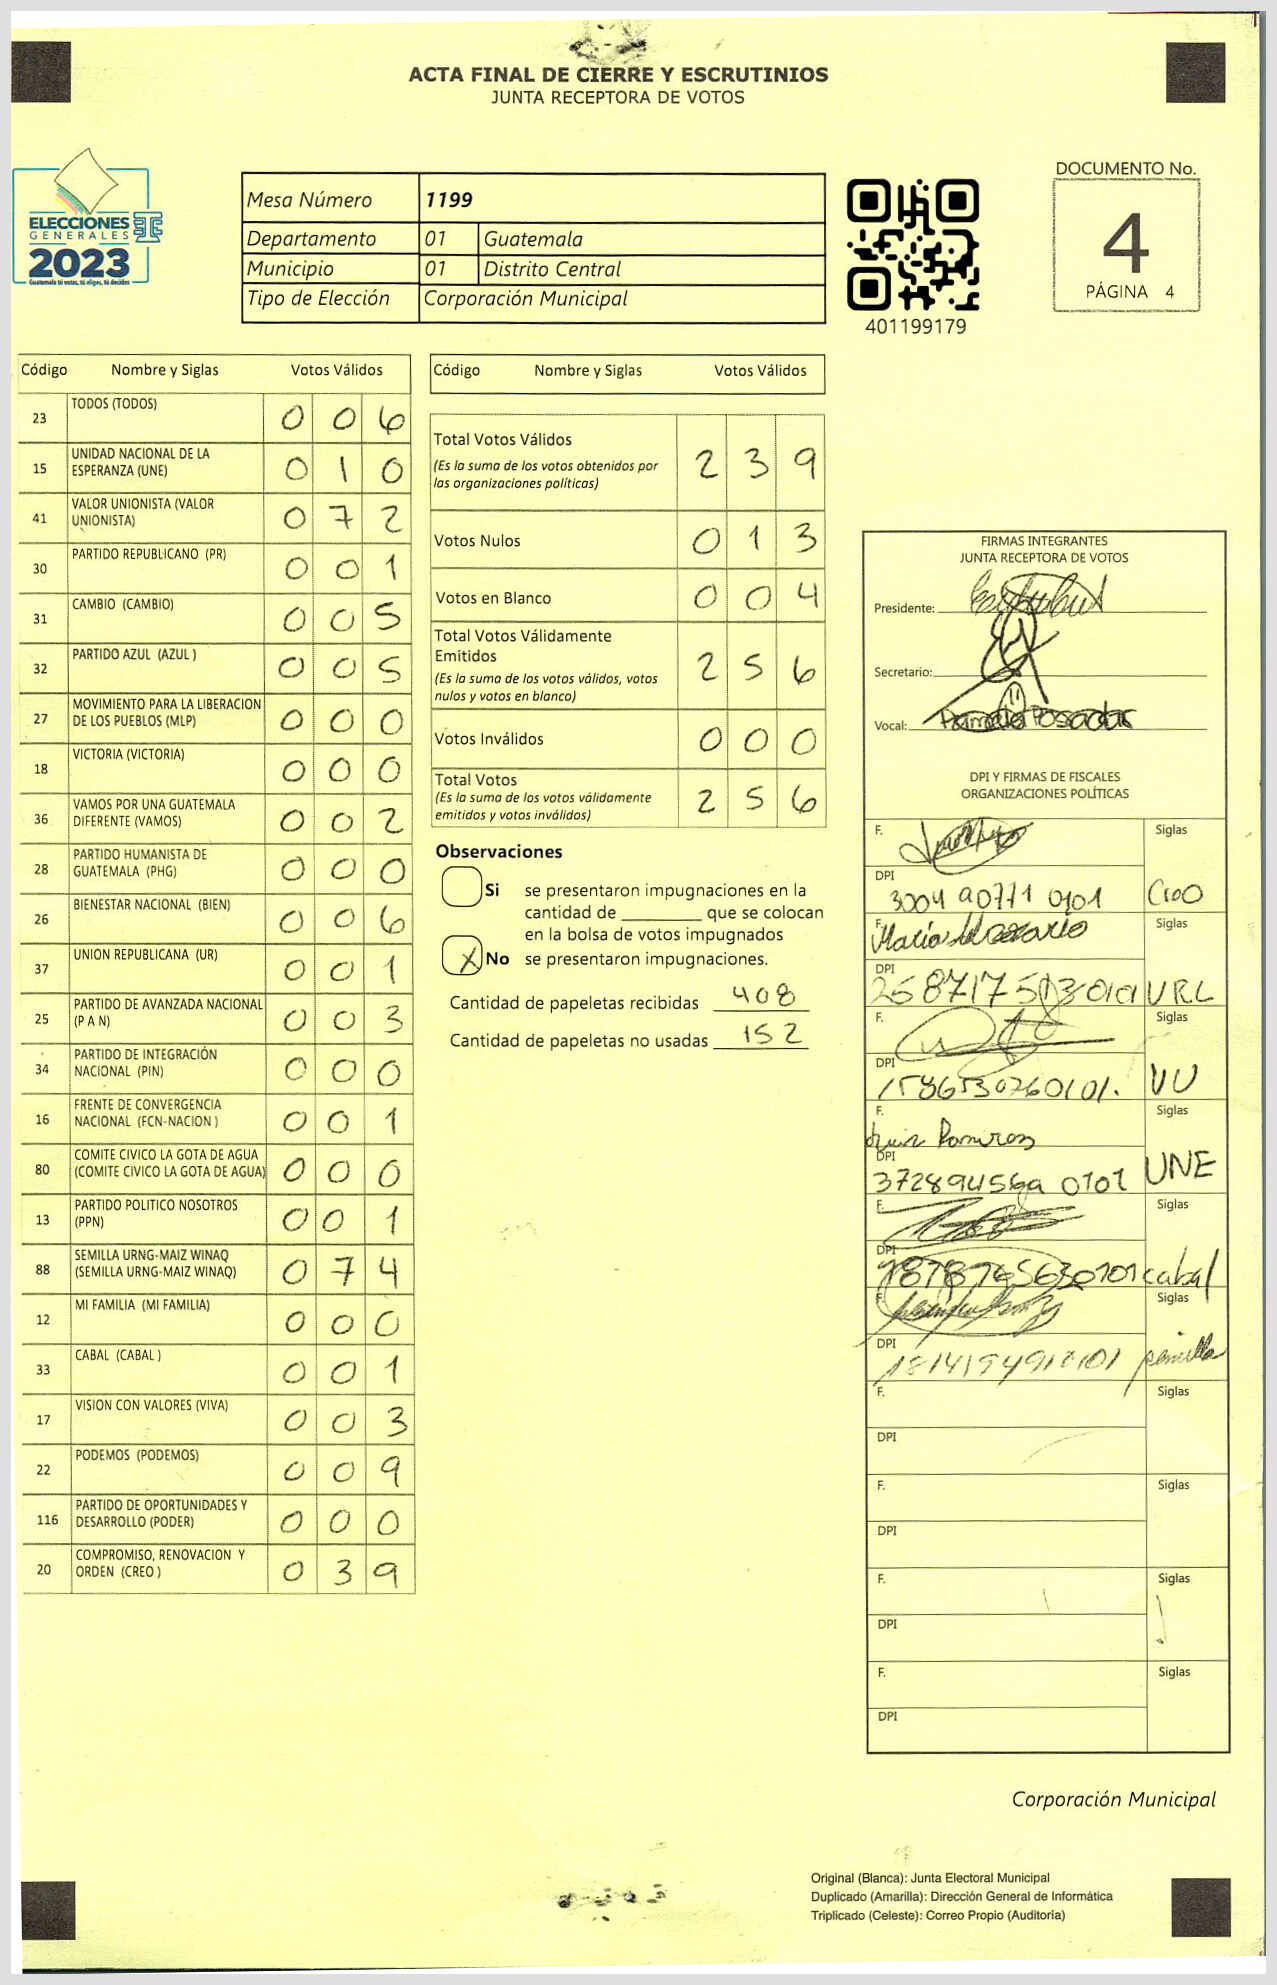 ACTA FINAL DE CIERRE Y ESCRUTINIOS
JUNTA RECEPTORA DE VOTOS
ELECCIONES
GENERALES
2023
Guatemala tú votas, tú eliges, tú decides
Mesa Número 1199
Departamento 01 Guatemala
Municipio 01 Distrito Central
Tipo de Elección Corporación Municipal
401199179
DOCUMENTO No.
4
PÁGINA 4
Código Nombre y Siglas Votos Válidos
23 TODOS (TODOS) 0 0 6
15 UNIDAD NACIONAL DE LA ESPERANZA (UNE) 0 1 0
41 VALOR UNIONISTA (VALOR UNIONISTA) 0 7 2
30 PARTIDO REPUBLICANO (PR) 0 0 1
31 CAMBIO (CAMBIO) 0 0 5
32 PARTIDO AZUL (AZUL ) 0 0 5
27 MOVIMIENTO PARA LA LIBERACION DE LOS PUEBLOS (MLP) 0 0 0
18 VICTORIA (VICTORIA) 0 0 0
36 VAMOS POR UNA GUATEMALA DIFERENTE (VAMOS) 0 0 2
28 PARTIDO HUMANISTA DE GUATEMALA (PHG) 0 0 0
26 BIENESTAR NACIONAL (BIEN) 0 0 6
37 UNION REPUBLICANA (UR) 0 0 1
25 PARTIDO DE AVANZADA NACIONAL (P A N) 0 0 3
34 PARTIDO DE INTEGRACIÓN NACIONAL (PIN) 0 0 0
16 FRENTE DE CONVERGENCIA NACIONAL (FCN-NACION ) 0 0 1
80 COMITE CIVICO LA GOTA DE AGUA (COMITE CIVICO LA GOTA DE AGUA) 0 0 0
13 PARTIDO POLITICO NOSOTROS (PPN) 0 0 1
88 SEMILLA URNG-MAIZ WINAQ (SEMILLA URNG-MAIZ WINAQ) 0 7 4
12 MI FAMILIA (MI FAMILIA) 0 0 0
33 CABAL (CABAL ) 0 0 1
17 VISION CON VALORES (VIVA) 0 0 3
22 PODEMOS (PODEMOS) 0 0 9
116 PARTIDO DE OPORTUNIDADES Y DESARROLLO (PODER) 0 0 0
20 COMPROMISO, RENOVACION Y ORDEN (CREO ) 0 3 9
Código Nombre y Siglas Votos Válidos
Total Votos Válidos 2 3 9
(Es la suma de los votos obtenidos por
las organizaciones políticas)
Votos Nulos 0 1 3
Votos en Blanco 0 0 4
Total Votos Válidamente
Emitidos 2 5 6
(Es la suma de los votos válidos, votos
nulos y votos en blanco)
Votos Inválidos 0 0 0
Total Votos 2 5 6
(Es la suma de los votos válidamente
emitidos y votos inválidos)
Observaciones
Si se presentaron impugnaciones en la
cantidad de ________ que se colocan
en la bolsa de votos impugnados
X No se presentaron impugnaciones.
Cantidad de papeletas recibidas 408
Cantidad de papeletas no usadas 152
FIRMAS INTEGRANTES
JUNTA RECEPTORA DE VOTOS
Presidente:
Secretario:
Vocal: Pamela Posadas
DPI Y FIRMAS DE FISCALES
ORGANIZACIONES POLÍTICAS
F. Siglas
DPI
3004 90771 0101
F. Siglas
DPI
URL
F. Siglas
DPI
1586530260101. VU
F. Luis Ramirez Siglas
DPI
372894569 0101 UNE
F. Siglas
DPI
1878765630101 cabal
F. Siglas
DPI
semilla
F. Siglas
DPI
F. Siglas
DPI
F. Siglas
DPI
F. Siglas
DPI
Corporación Municipal
Original (Blanca): Junta Electoral Municipal
Duplicado (Amarilla): Dirección General de Informática
Triplicado (Celeste): Correo Propio (Auditoría)